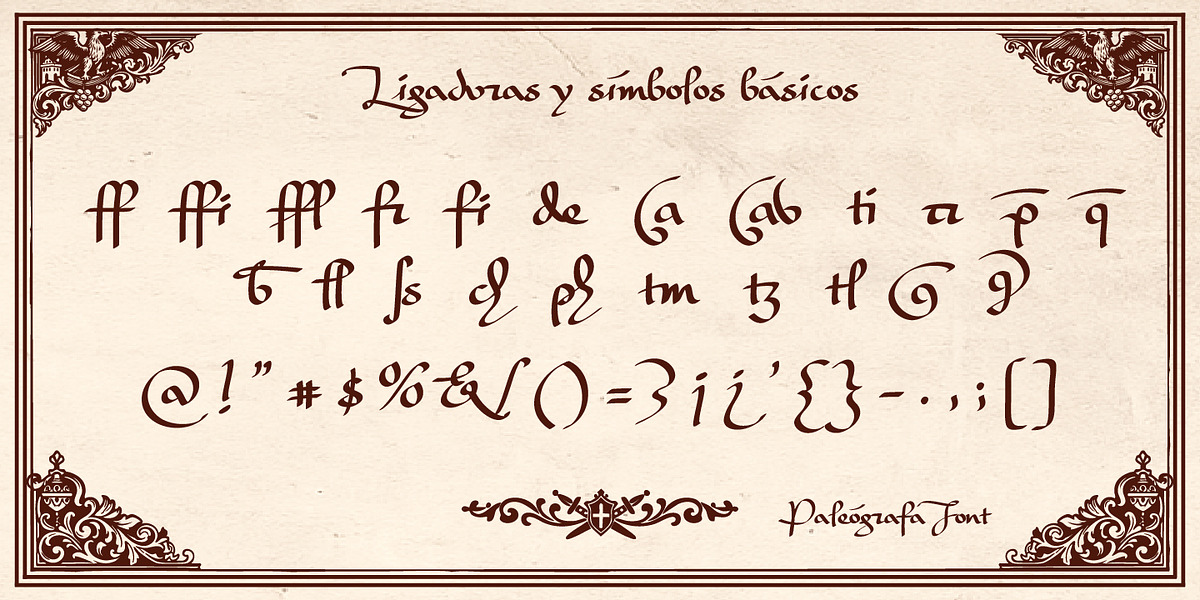 Ligaduras y símbolos básicos
ff ffi ffl fr fi de ti p̄ q̄
ſs ch ph tm tz tl
@ ! ” # $ % & ( ) = ¡ ¿ ’ { } - . , ; [ ]
Paleógrafa Font